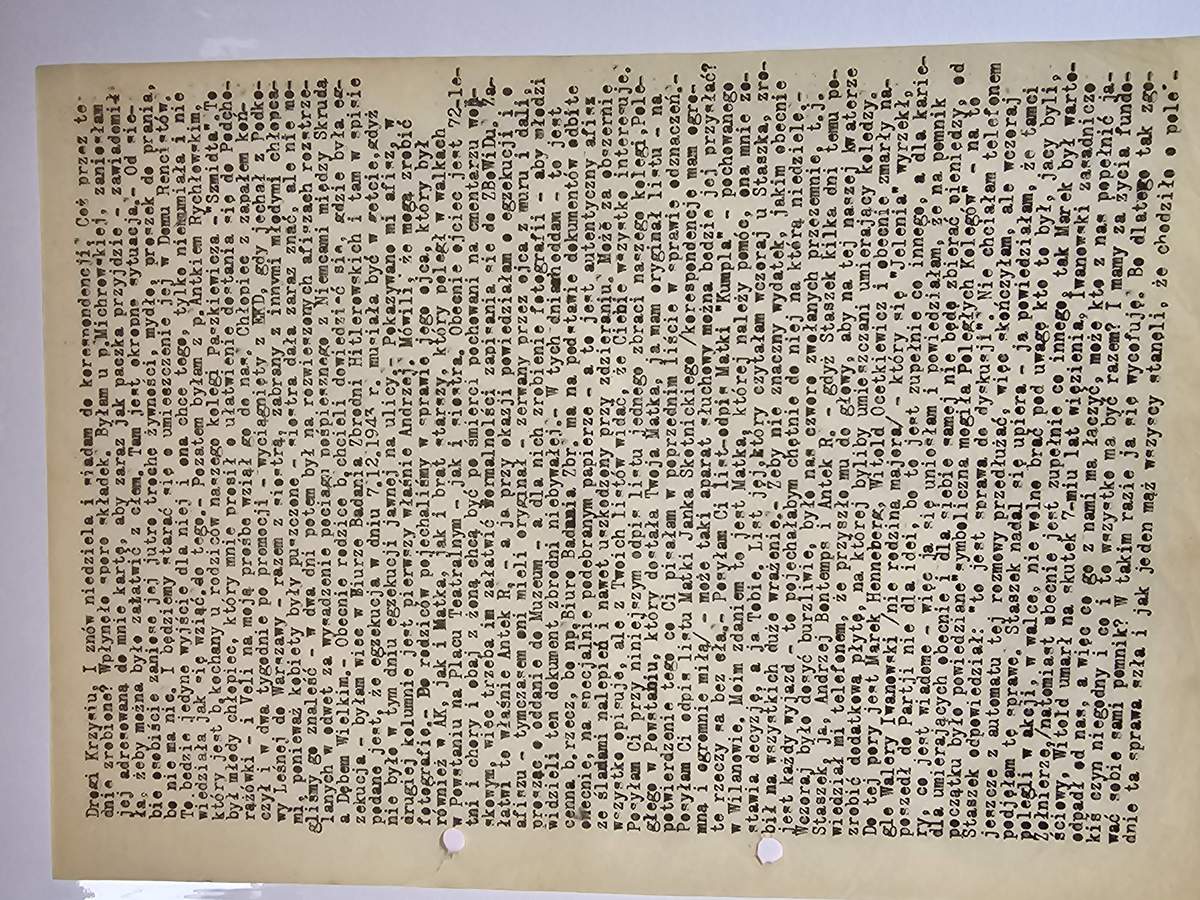 Drogi Krzysiu, I znów niedziela i siadam do korespondencji. Coś przez te
dnie zrobione? Wpłynęło sporo składek. Byłam u p.Michrowskiej, zaniosłam
jej adresowaną do mnie kartę, aby zaraz jak paczka przyjdzie - zawiadomił
ła, żeby można było załatwić z czem. Tam jest okropna sytuacja.- Od sie-
bie osobiście zaniosę jej jutro trochę żywności, mydło, proszek do prania,
bo nie ma nic. I będziemy starać się o umieszczenie jej w Domu Rencistów.
To będzie jedyne wyjście dla niej i ona chce tego, tylko nieumiała i nie
wiedziała jak się wziąć do tego.- Pozatem byłam z p. Antkiem Rychłowskim,
który jest b.kochany u rodziców naszego kolegi Paszkiewicza -"Szmidta". To
był młody chłopiec, który mnie prosił o ułatwienie dostania się do Podcho-
rążówki - i Veli na moją prośbę wziął go do nas. Chłopiec z zapałem koń-
czył i w dwa tygodnie po promocji - wyciągnięty z EKD, gdy jechał z Podko-
wy Leśnej do Warszawy - razem z siostrą, zabrany z innymi młodymi chłopca-
mi, ponieważ kobiety były puszczone - siostra dała zaraz znać, ale nie mo-
gliśmy go znaleść - w dwa dni potem był na rozwieszonych afiszach rozstrze-
lanych w odwet za wysadzenie pociągu pośpiesznego z Niemcami między Skrudą
a Dębem Wielkim.- Obecnie rodzice b.chcieli dowiedzieć się, gdzie była eg-
zekucja - byłam więc w Biurze Badania Zbrodni Hitlerowskich i tam w spisie
podane jest, że egzekucja w dniu 7.12.1943 r. musiała być w getcie,gdyż
nie było w tym dniu egzekucji jawnej na ulicy.- Pokazywano mi afisz, w
drugiej kolumnie jest pierwszy właśnie Andrzej. Mówili, że mogą zrobić
fotografię.- Do rodziców pojechaliśmy w sprawie jego ojca, który był
również w AK, jak i Matka, jak i brat starszy, który poległ w walkach
w Powstaniu na Placu Teatralnym - jak i siostra. Obecnie ojciec jest 72-le-
tni i chory i obaj z żoną chcą być po śmierci pochowani na cmentarzu woj-
skowym, więc trzeba im załatwić formalności zapisania się do ZBoWiDu. Za-
łatwi to właśnie Antek R, - a ja przy okazji powiedziałam o egzekucji i o
afiszu - tymczasem oni mieli oryginał - zerwany przez ojca z muru i dali,
prosząc o oddanie do Muzeum - a dla nich zrobienie fotografii - aby młodzi
widzieli ten dokument zbrodni niebywałej.- W tych dniach oddam - to jest
cenna b.rzecz, bo np.Biuro Badania Zbr. ma na podstawie dokumentów odbite
obecnie, na specjalnie podebranym papierze - a to jest autentyczny afisz
ze śladami nalepień i nawet uszkodzony przy zdzieraniu. Może za obszernie
wszystko opisuję, ale z Twoich listów widać, że Ciebie wszystko interesuje.
Posyłam Ci przy niniejszym odpis listu jednego zbraci naszego kolegi,Pole-
głego w Powstaniu, który dostała Twoja Matka, ja mam oryginał listu - na
potwierdzenie tego co Ci pisałam w poprzednim liście w sprawie odznaczeń.-
Posyłam Ci odpis listu Matki Janka Skotnickiego /korespondencję mam ogro-
mną i ogromnie miłą/ - może taki aparat słuchowy można będzie jej przysłać?
te rzeczy są bez cła.- Posyłam Ci list-odpis Matki "Kumpla" - pochowanego
w Wilanowie. Moim zdaniem to jest Matka, której należy pomóc, ona mnie zo-
stawia decyzję, a ja Tobie. List jej,który czytałam wczoraj u Staszka, zro-
bił na wszystkich duże wrażenie.- Gdyby nie znaczny wydatek, jakim obecnie
jest każdy wyjazd - to pojechałabym chętnie do niej na którą niedzielę.-
Wczoraj było dosyć burzliwie, było nas czworo zwołanych przezemnie, t.j.
Staszek, ja, Andrzej Bontemps i Antek R. - gdyż Staszek kilka dni temu po-
wiedział mi telefonem, że przyszło mu do głowy, aby na tej naszej kwaterze
zrobić dodatkową płytę, na której byliby umieszczani umierający koledzy.
Do tej pory jest Marek Henneberg, Witold Ocetkiewicz i obecnie zmarły na-
gle Walery Iwanowski /nie rodzina majora/ - który się "Jelenia" wyrzekł,
poszedł do Partji nie dla idei, bo to jest zupełnie co innego, a dla karie-
ry, co jest wiadome - więc ja się uniosłam i powiedziałam, że na pomnik
dla umierających obecnie i dla siebie samej nie będę zbierać pieniędzy, od
początku było powiedziane"symboliczna mogiła Poległych Kolegów" - na to
Staszek odpowiedział:" to jest sprawa do dyskusji". Nie chciałam telefonem
jeszcze z automatu tej rozmowy przedłużać, więc skończyłam, ale wczoraj
podjęłam tę sprawę. Staszek nadal się upierał - ja powiedziałam, że tamci
polegli w akcji, w walce, nie wolno brać pod uwagę kto to był, jacy byli,
Żołnierze,/natomiast obecnie jest zupełnie co innego, tak Marek był warto-
ściowy, Witold umarł na skutek 7-miu lat więzienia, Iwanowski zasadniczo
odpadł od nas, a więc co go z nami ma łączyć, może kto z nas popełnić ja-
kiś czyn niegodny i co i to wszystko ma być razem? I mamy za życia fundo-
wać sobie sami pomnik? W takim razie ja się wycofuję. Bo dlatego tak zgo-
dnie ta sprawa szła i jak jeden mąż wszyscy stanęli, że chodziło o pole -